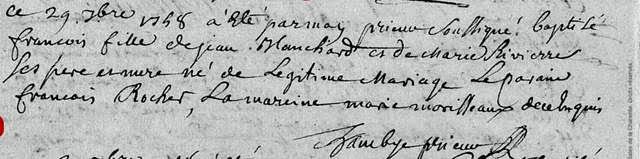 ce 29. 7bre 1758 a Eté par moy prieur soussigné Baptisé
francois fille de jean Blanchard et de marie Rivierre
Ses pere et mere né de Legitime mariage Le parain
francois Rocher, La mareine marie morilleaux
prieur